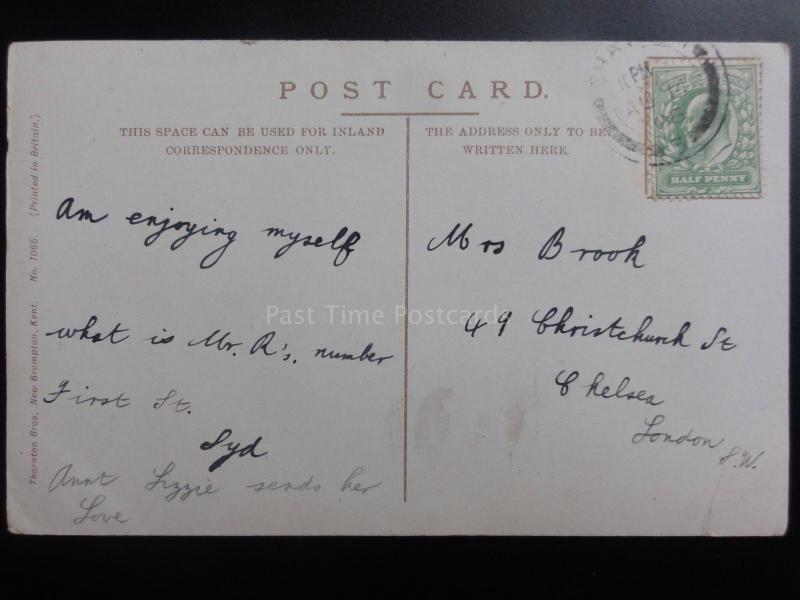 POST CARD.
THIS SPACE CAN BE USED FOR INLAND
CORRESPONDENCE ONLY.
THE ADDRESS ONLY TO BE
WRITTEN HERE.
HALF PENNY
Am enjoying myself
what is Mr. R's. number
First St.
Syd
Aunt Lizzie sends her
Love
Mrs Brook
49 Christchurch St
Chelsea
London
S.W.
Thornton Bros, New Brompton, Kent. No. 1065. (Printed in Britain.)
Past Time Postcards